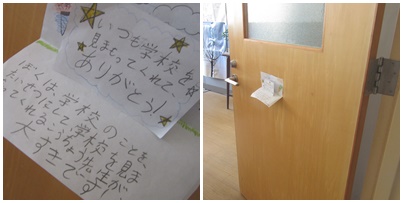 いつも学校を
見まもってくれて
ありがとう!
ぼくは、学校のことを、
たいせつにして学校を見ま
ってくれるこうちょう先生が、
大すきです!